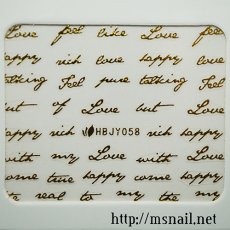 Love feel like Love feel
happy rich love happy love
talking Feel pure talking Feel
out of Love but Love
happy rich HBJY058 rich happy
with my Love with Love
come true happy come happy
to real to my the my
http://msnail.net